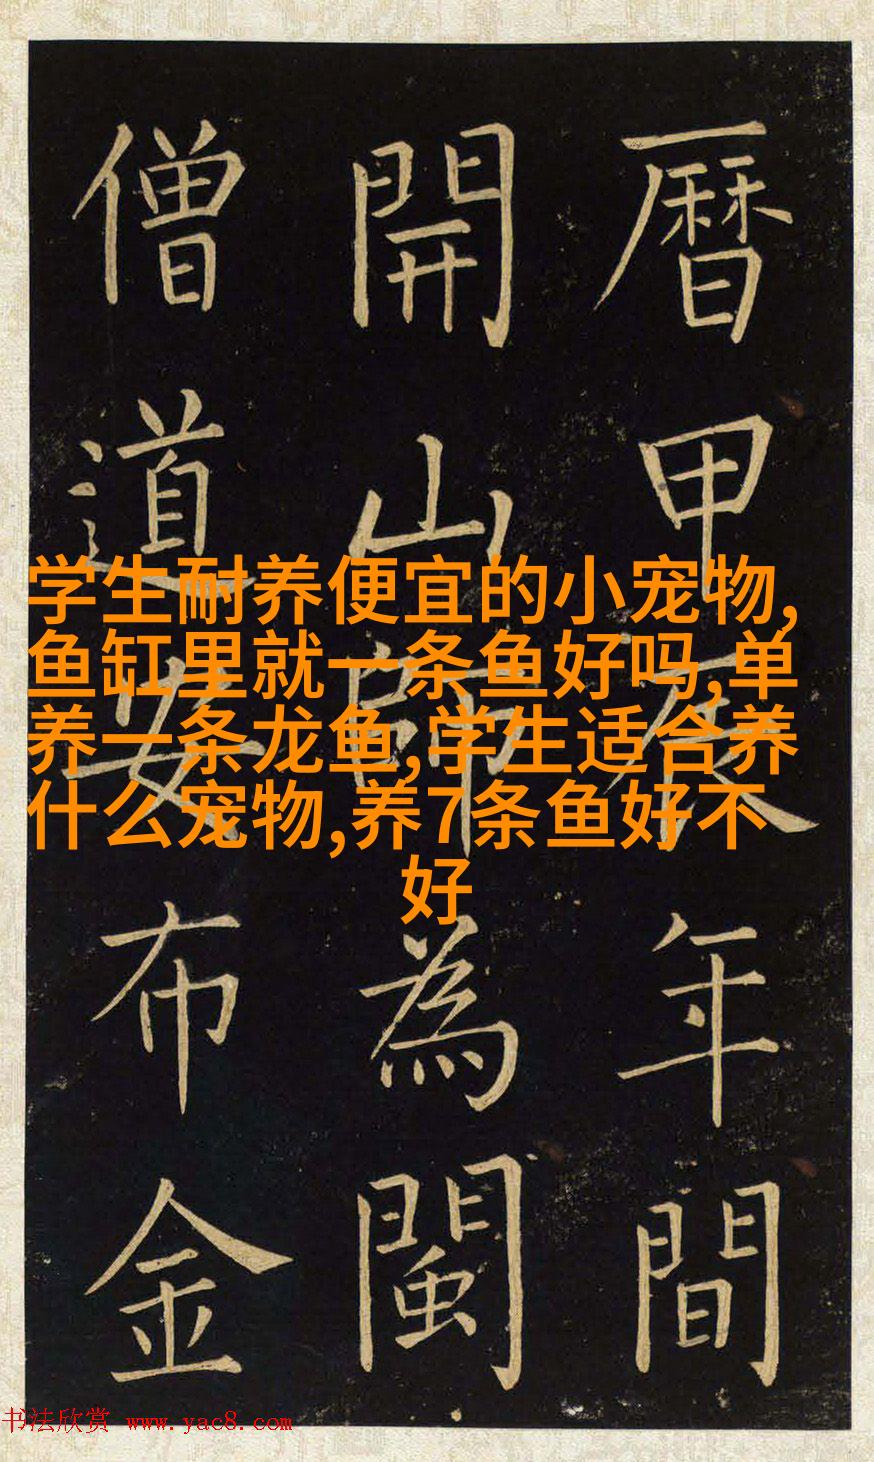 曆甲辰年間
開山師為閩
僧道安布金
学生耐养便宜的小宠物,
鱼缸里就一条鱼好吗,单
养一条龙鱼,学生适合养
什么宠物,养7条鱼好不
好
书法欣赏 www.yac8.com